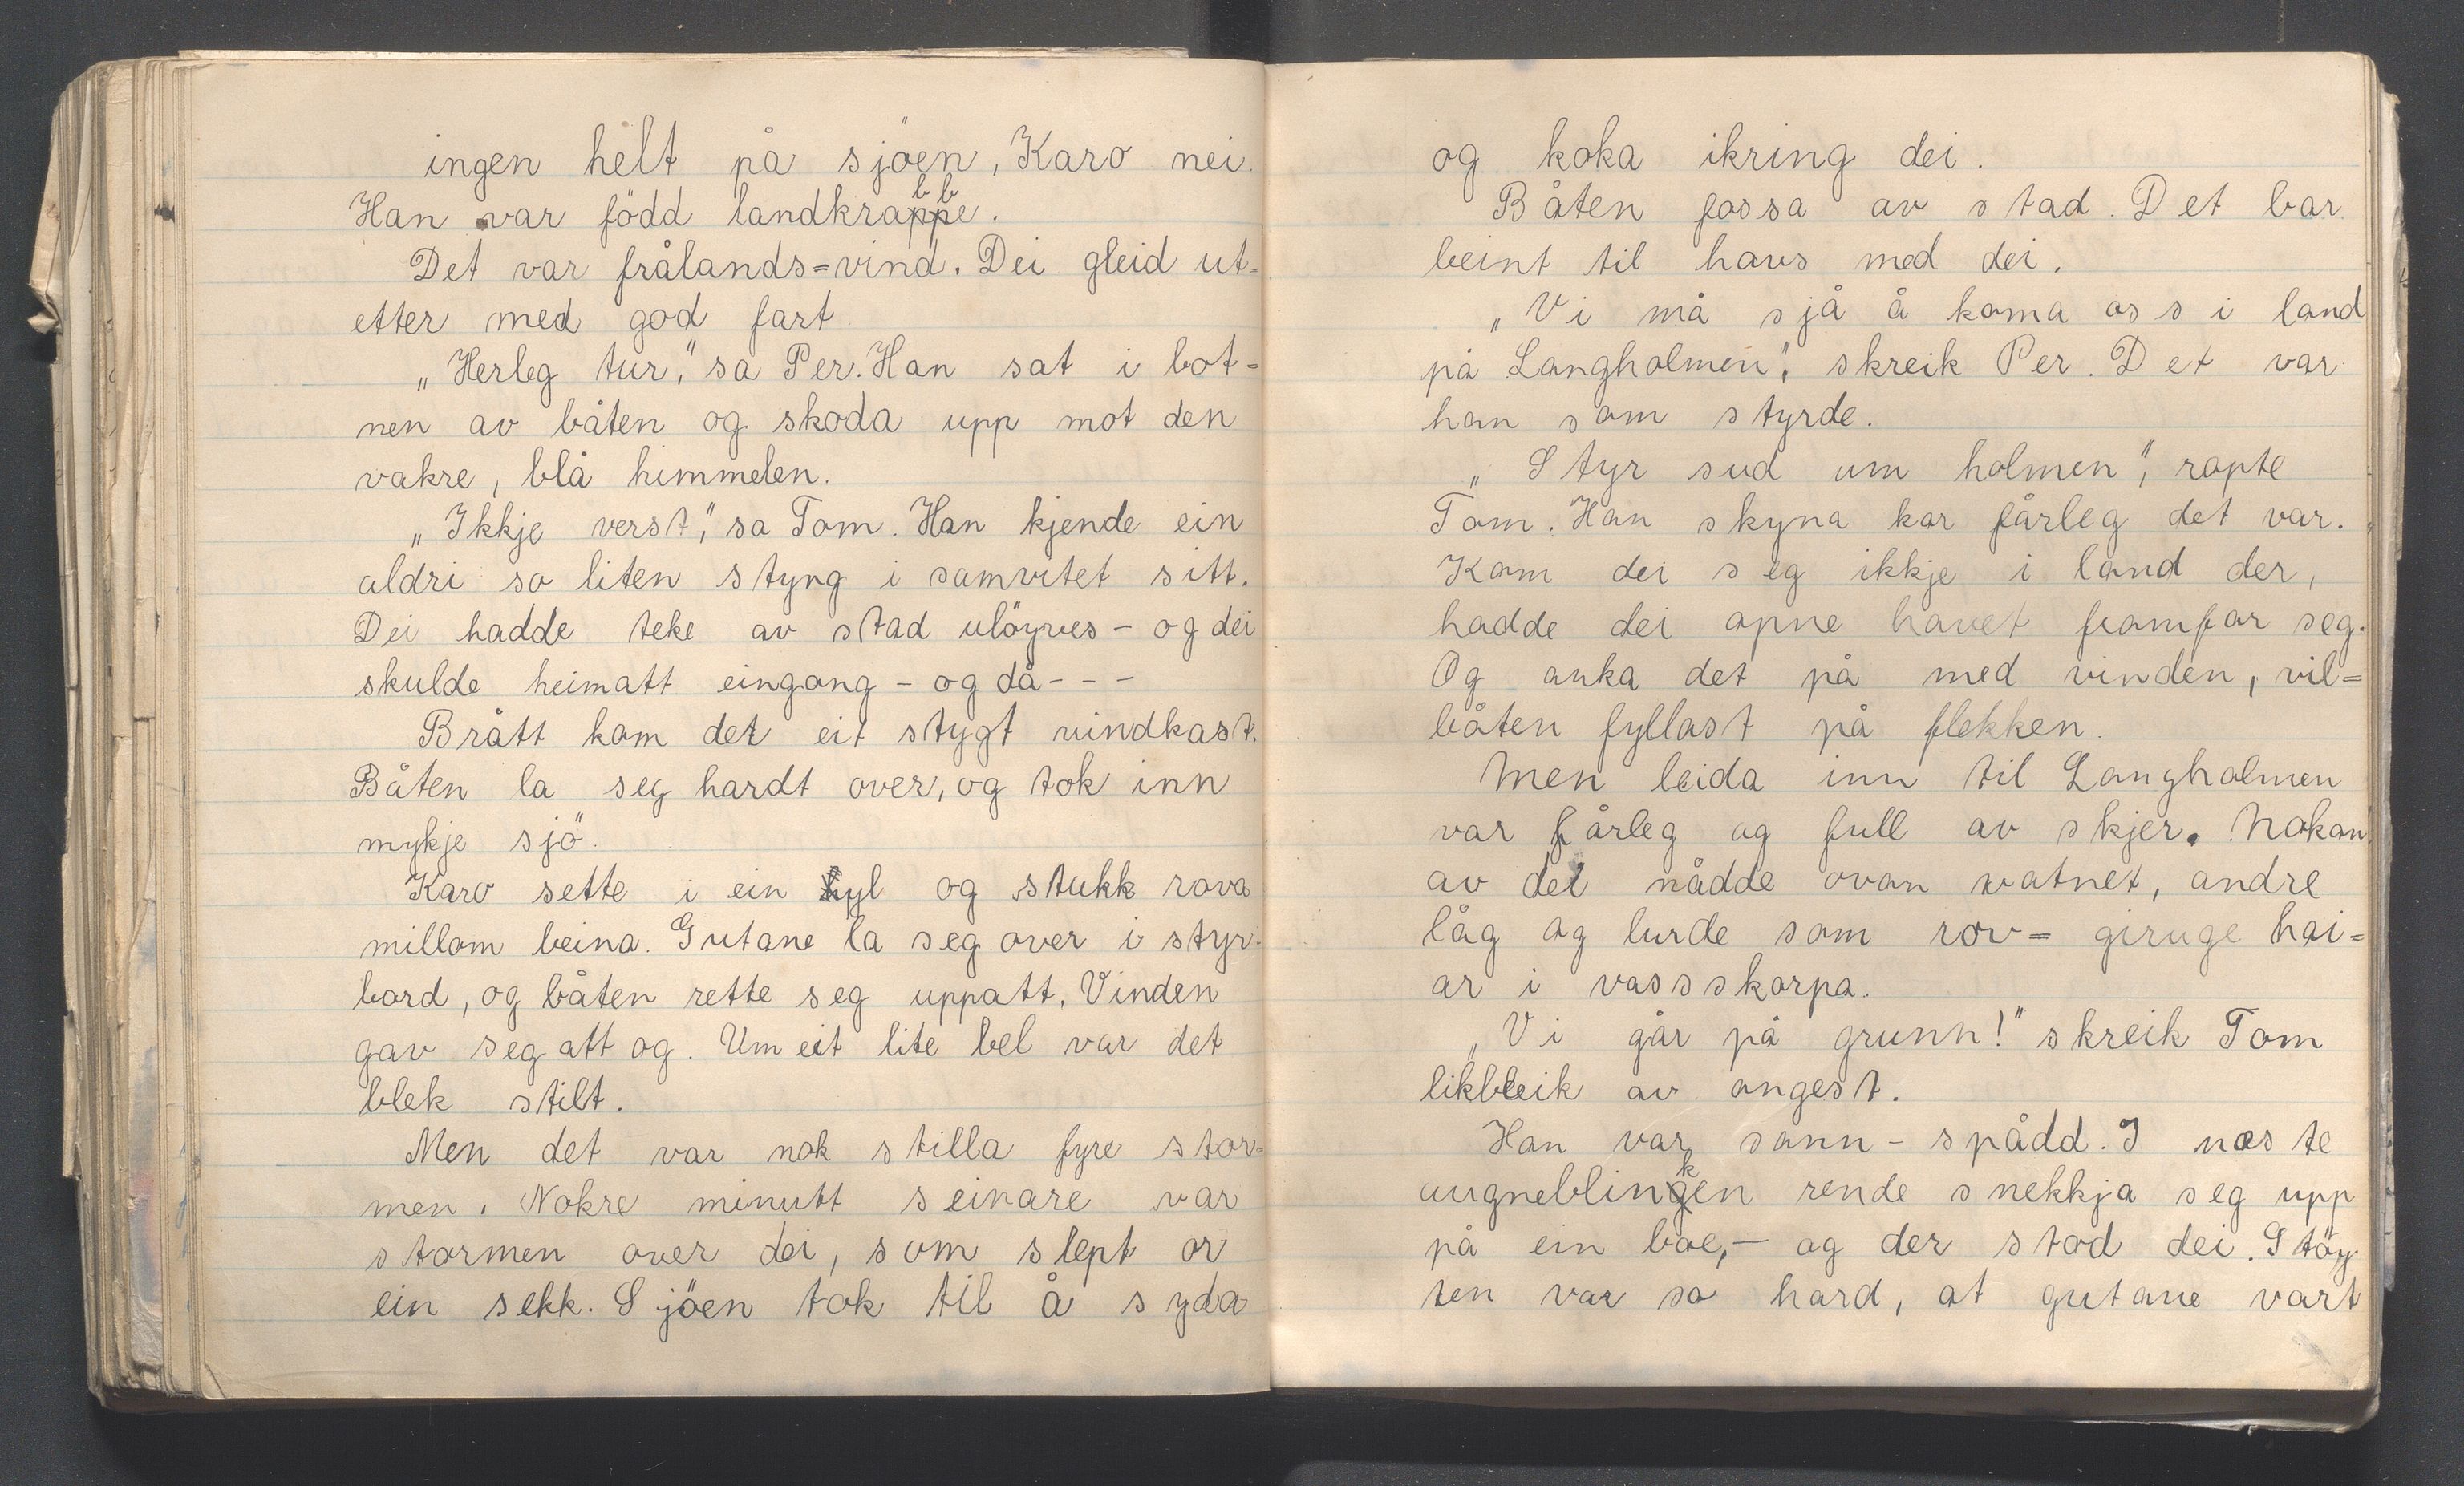 ingen helt på sjöen, Karo nei.
Han var född landkrabbe.
Det var frålands=vind. Dei gleid ut=
etter med god fart.
„Herleg tur," sa Per. Han sat i bot=
nen av båten og skoda upp mot den
vakre, blå himmelen.
„Ikkje verst," sa Tom. Han kjende ein
aldri so liten styng i samvitet sitt.
Dei hadde teke av stad ulöyves - og dei
skulde heimatt eingong - og då - - -
Brått kom det eit stygt vindkast.
Båten la seg hardt over, og tok inn
mykje sjö.
Karo sette i ein hyl og stukk rova
millom beina. Gutane la seg over i styr-
bord, og båten rette seg uppatt. Vinden
gav seg att og. Um eit lite bel var det
blek stilt.
Men det var nok stilla fyre stor=
men. Nokre minutt seinare var
stormen over dei, som slept or
ein sekk. Sjöen tok til å syda
og koka ikring dei.
Båten fossa av stad. Det bar
beint til havs med dei.
„Vi må sjå å koma oss i land
på Langholmen", skreik Per. Det var
han som styrde.
„Styr sud um holmen", ropte
Tom. Han skyna kor fårleg det var.
Kom dei seg ikkje i land der,
hadde dei opne havet framfor seg.
Og auka det på med vinden, vil=
båten fyllast på flekken.
Men leida inn til Langholmen
var fårleg og full av skjer. Nokon
av dei nådde ovan vatnet, andre
låg og lurde som rov= giruge hai=
ar i vassskorpa.
„Vi går på grunn!" skreik Tom
likbleik av angest.
Han var sann-spådd. I næste
augneblinken rende snekkja seg upp
på ein boe, - og der stod dei. Stöy
ten var so hard, at gutane vart